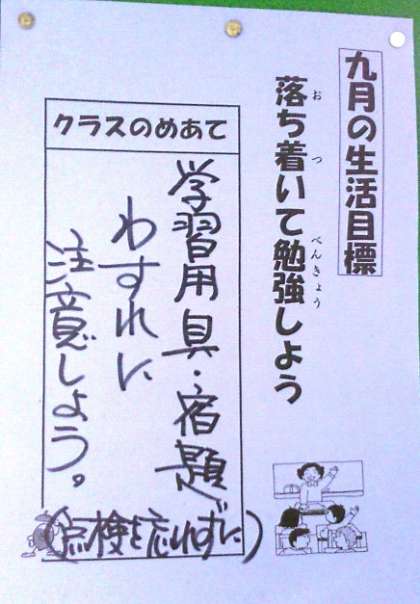 九月の生活目標
落ち着いて勉強しよう
お
つ
べんきょう
クラスのめあて
学習用具・宿題
わすれに
注意しよう。
(点検を忘れずに)